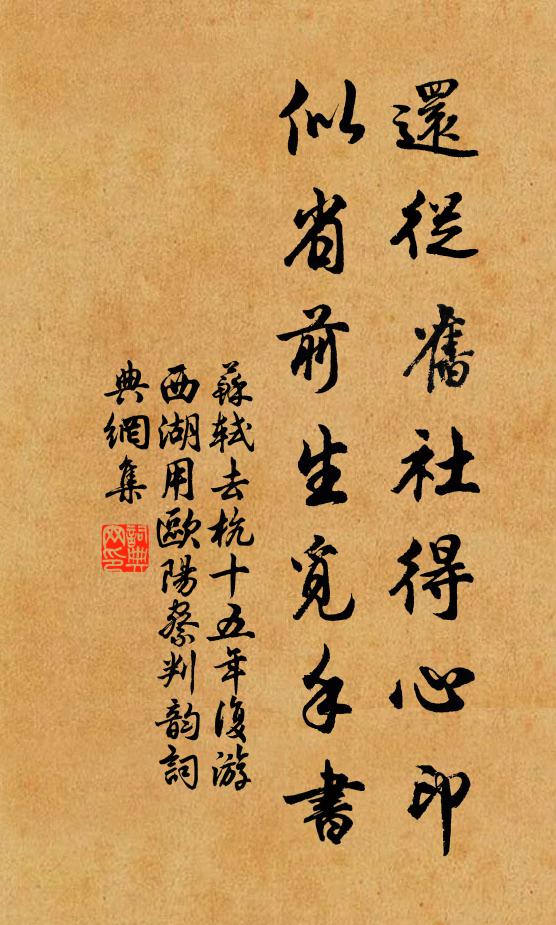 還從舊社得心印
似省前生覓手書
蘇軾去杭十五年復游
西湖用歐陽察判韵詞
典網集
詞典网印